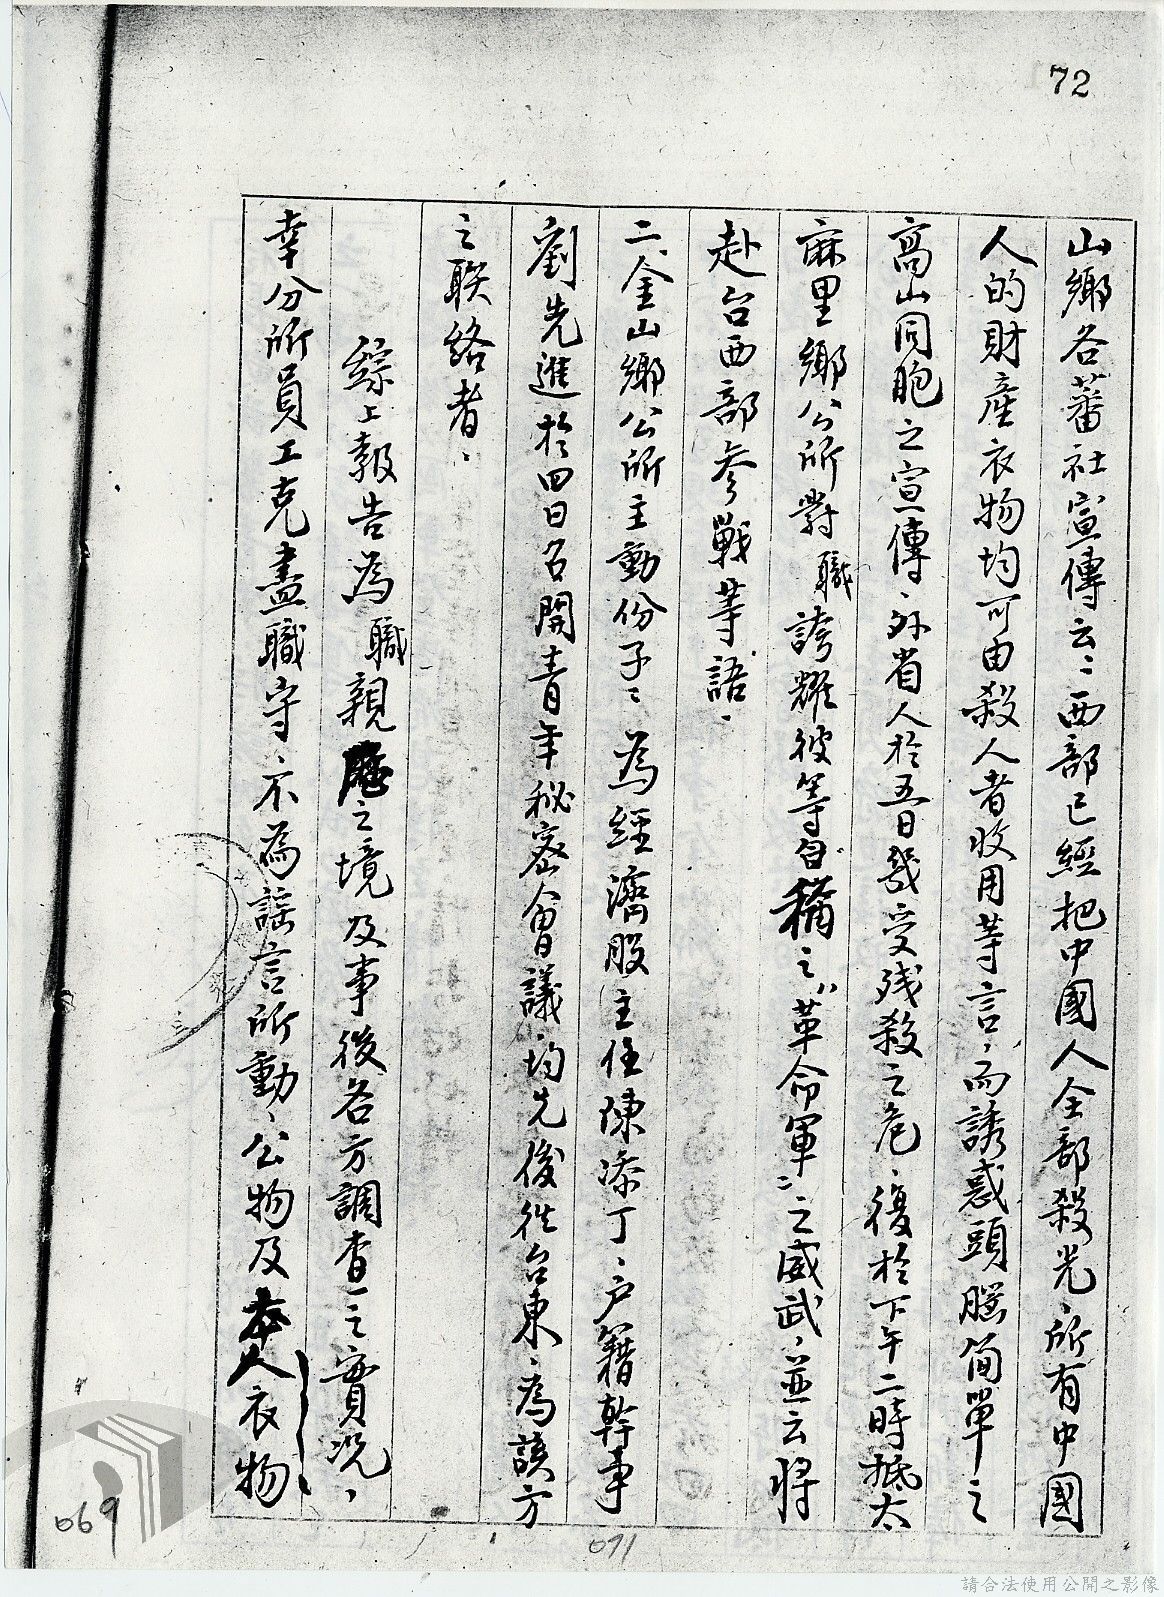 72
山鄉各蕃社宣傳云：西部已經把中國人全部殺光、所有中國
人的財產衣物均可由殺人者收用等言、而誘惑頭腦簡單之
高山同胞之宣傳、外省人於五日幾受殘殺之危、復於下午二時抵太
麻里鄉公所對職誇耀彼等自稱之“革命軍”之威武、並云將
赴台西部參戰等語、
二、金山鄉公所主動份子：為經濟股主任陳添丁、戶籍幹事
劉先進於四日召開青年秘密會議均先後往台東、為該方
之聯絡者、
綜上報告為職親歷之境及事後各方調查之實況、
幸分所員工克盡職守不為謠言所動、公物及本人衣物
069
071
請合法使用公開之影像